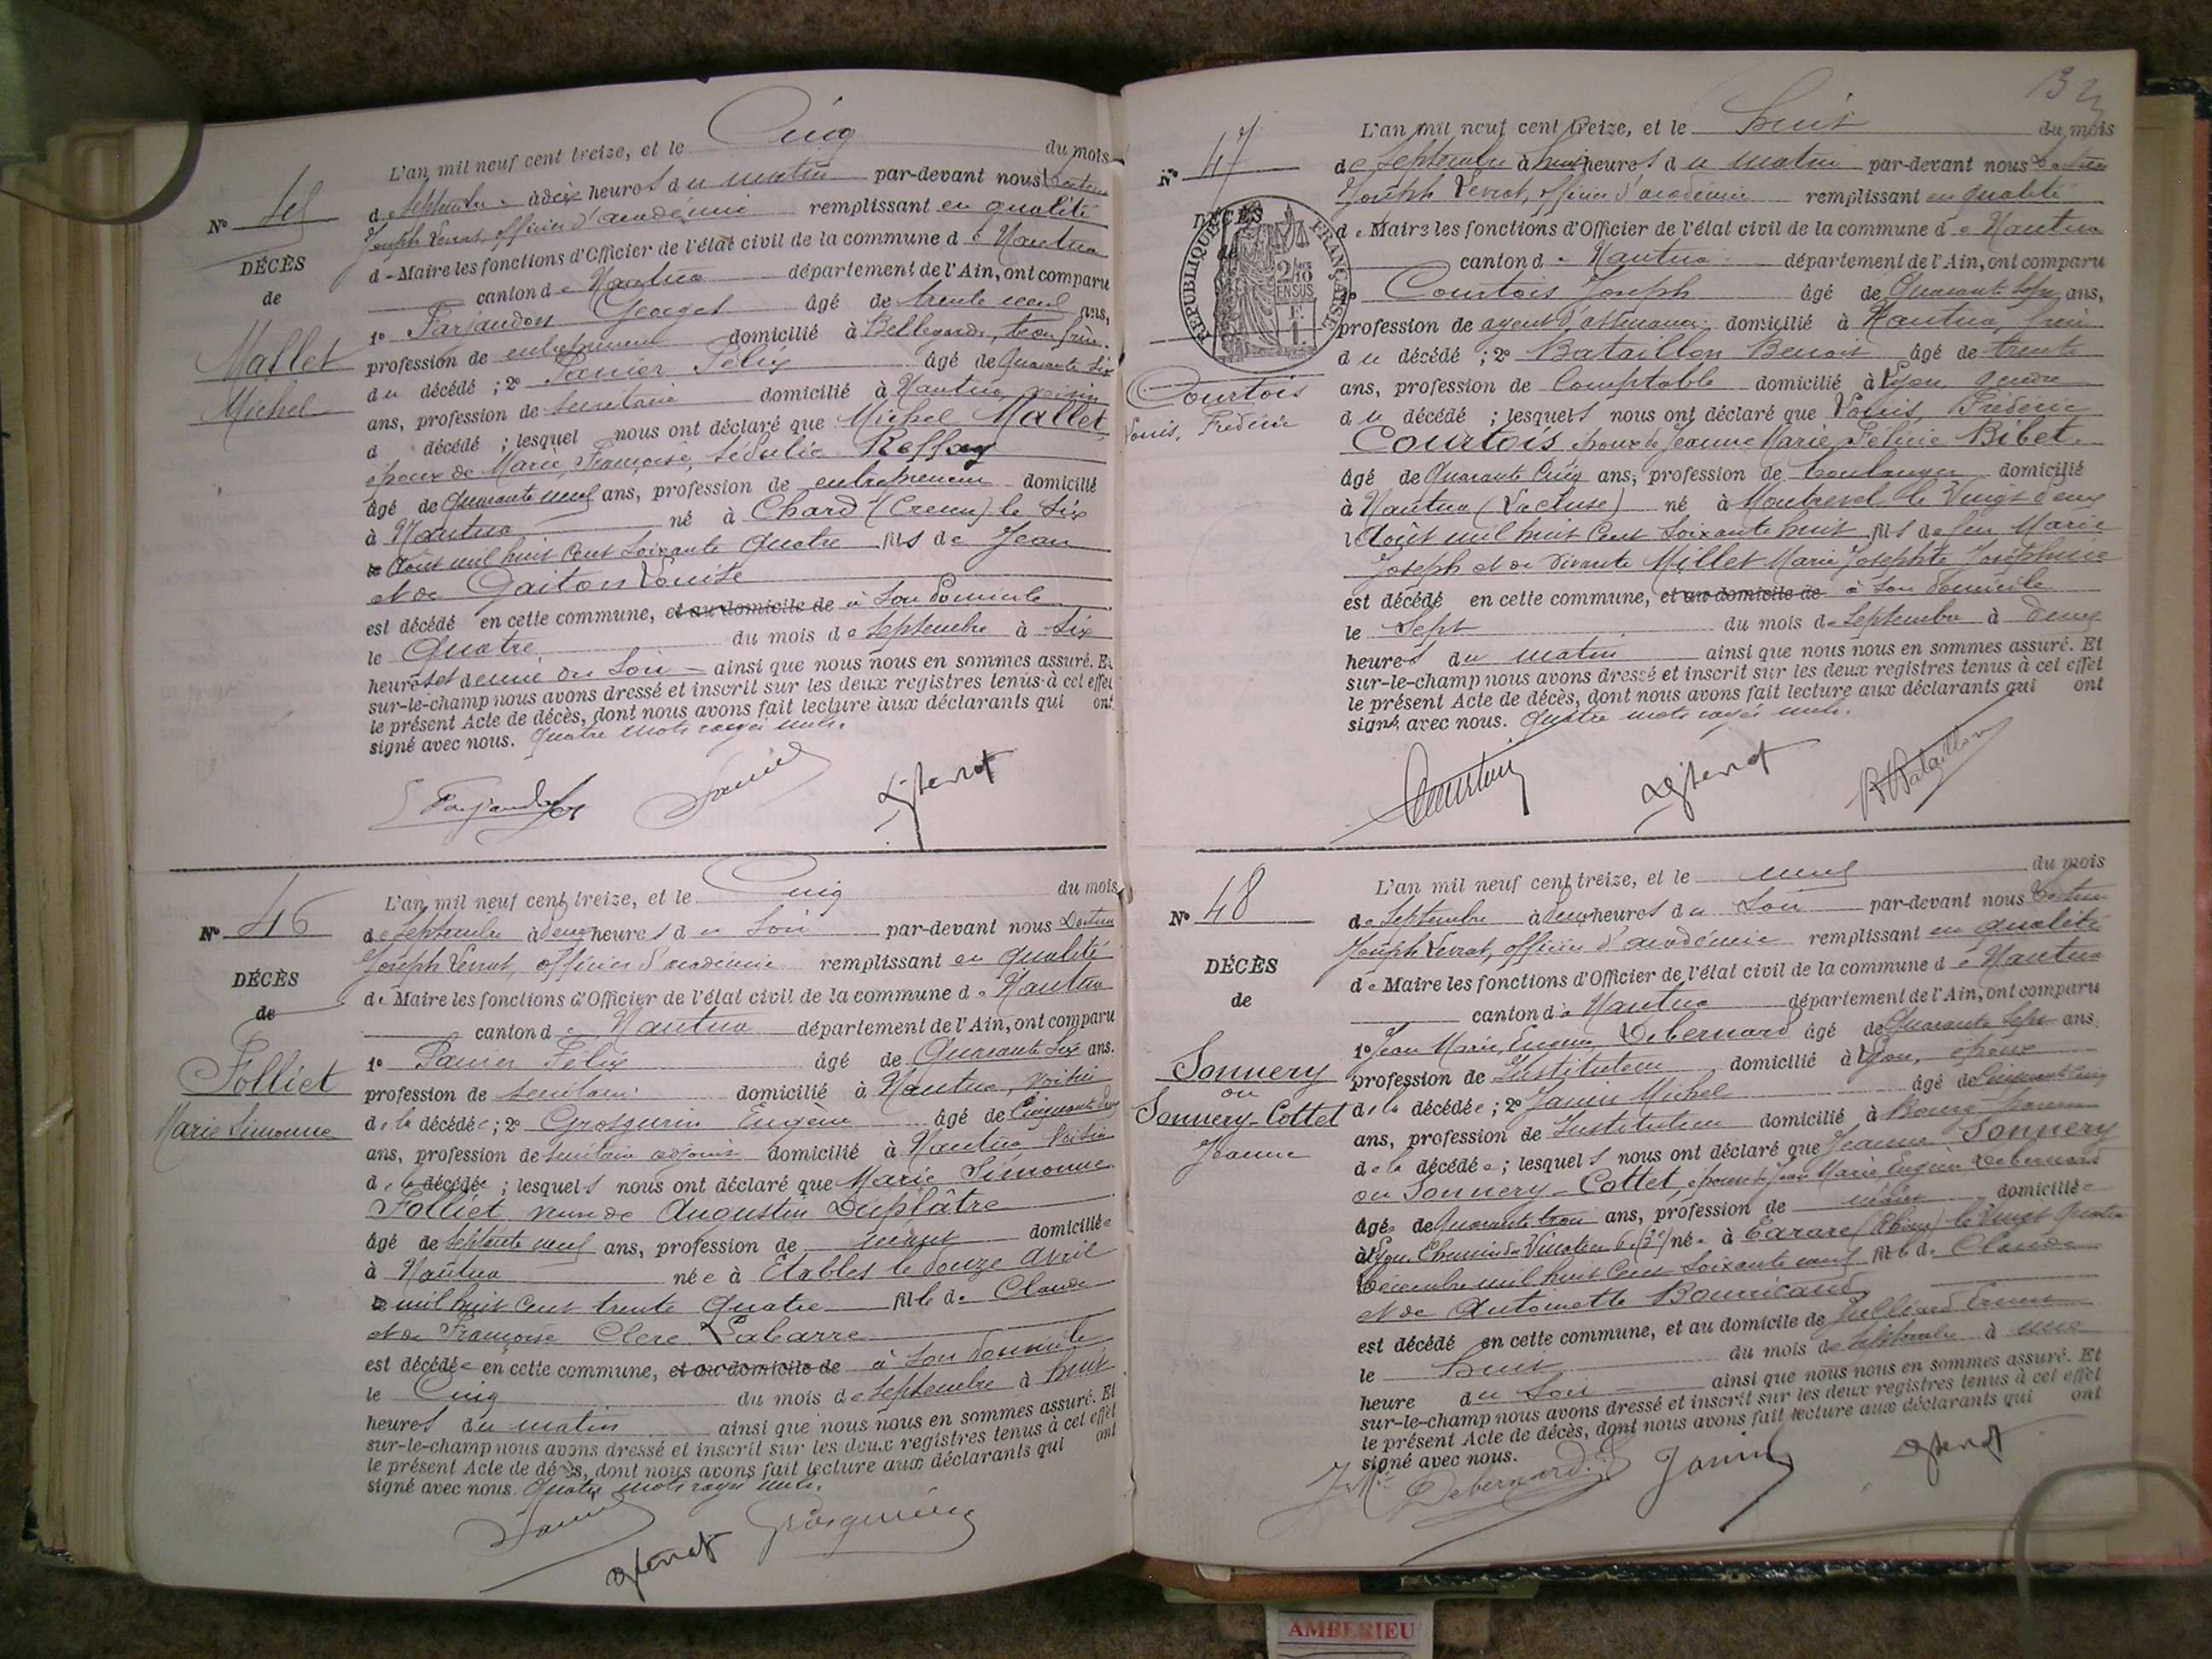 L'an mil neuf cent treize, et le Cinq du mois
de Septembre à dix heures du matin par-devant nous Docteur
Joseph Verrat, officier d'académie remplissant en qualité
de Maire les fonctions d'Officier de l'état civil de la commune de Nantua
canton de Nantua département de l'Ain, ont comparu
1° Farjaudon Georges âgé de trente neuf ans,
profession de entrepreneur domicilié à Bellegarde, beau frère
du décédé ; 2° Panier Félix âgé de Quarante Six
ans, profession de Secrétaire domicilié à Nantua, voisin
d décédé ; lesquel nous ont déclaré que Michel Mallet,
époux de Marie, Françoise, Sédulie
âgé de Quarante neuf ans, profession de entrepreneur domicilié
à Nantua né à Chard (Creuse) le Six
Août mil huit Cent Soixante Quatre fils de Jean
et de Gaiton Louise
est décédé en cette commune, et au domicile de à Son Domicile
le Quatre du mois de Septembre à Six
heures et demie du Soir ainsi que nous nous en sommes assuré. Et
sur-le-champ nous avons dressé et inscrit sur les deux registres tenus à cet effet
le présent Acte de décès, dont nous avons fait lecture aux déclarants qui ont
signé avec nous. Quatre mots rayés nuls.
N° 45
DÉCÈS
de
Mallet
Michel
L'an mil neuf cent treize, et le Cinq du mois
de Septembre à deux heures du Soir par-devant nous Docteur
Joseph Verrat, officier d'académie remplissant en qualité
de Maire les fonctions d'Officier de l'état civil de la commune de Nantua
canton de Nantua département de l'Ain, ont comparu
1° Panier Félix âgé de Quarante Six ans.
profession de Secrétaire domicilié à Nantua, voisin
de la décédée ; 2° Grosgurin Eugène âgé de Cinquante
ans, profession de Secrétaire adjoint domicilié à Nantua Voisin
de la décédée ; lesquels nous ont déclaré que Marie Simonne
Folliet veuve de Augustin Duplâtre
âgé de Septante neuf ans, profession de néant domiciliée
à Nantua née à Etables le Douze Avril
mil huit Cent trente Quatre fille de Claude
et de Françoise Clerc Labarre
est décédée en cette commune, et au domicile de à Son Domicile
le Cinq du mois de Septembre à huit
heures du matin ainsi que nous nous en sommes assuré. Et
sur-le-champ nous avons dressé et inscrit sur les deux registres tenus à cet effet
le présent Acte de décès, dont nous avons fait lecture aux déclarants qui ont
signé avec nous. Quatre mots rayés nuls.
N° 46
DÉCÈS
de
Folliet
Marie Simonne
Grosgurin
L'an mil neuf cent treize, et le huit du mois
de Septembre à huit heures du matin par-devant nous Docteur
Joseph Verrat, officier d'académie remplissant en qualité
de Maire les fonctions d'Officier de l'état civil de la commune de Nantua
canton de Nantua département de l'Ain, ont comparu
1° Courtois Joseph âgé de Quarante Sept ans,
profession de agent d'assurances domicilié à Nantua, frère
du décédé ; 2° Bataillon Benoit âgé de trente
ans, profession de Comptable domicilié à Lyon gendre
du décédé ; lesquels nous ont déclaré que Louis, Frédéric
Courtois époux de Jeanne Marie Félicie Bibet.
âgé de Quarante Cinq ans, profession de boulanger domicilié
à Nantua (Lacluse) né à Montrevel le Vingt deux
Août mil huit Cent Soixante huit fils de feu Marie
Joseph et de vivante Millet Marie Josephte Joséphine
est décédé en cette commune, et au domicile de à Son Domicile
le Sept du mois de Septembre à deux
heures du matin ainsi que nous nous en sommes assuré. Et
sur-le-champ nous avons dressé et inscrit sur les deux registres tenus à cet effet
le présent Acte de décès, dont nous avons fait lecture aux déclarants qui ont
signé avec nous. Quatre mots rayés nuls.
N° 47
DÉCÈS
de
RÉPUBLIQUE FRANÇAISE
2/10 EN SUS
Courtois
Louis, Frédéric
Courtois
B Bataillon
L'an mil neuf cent treize, et le neuf du mois
de Septembre à deux heures du Soir par-devant nous Docteur
Joseph Verrat, officier d'académie remplissant en qualité
de Maire les fonctions d'Officier de l'état civil de la commune de Nantua
canton de Nantua département de l'Ain, ont comparu
1° Jean Marie, Eugène, Debernard âgé de Quarante Sept ans.
profession de Instituteur domicilié à Lyon, époux
de la décédée ; 2° Janin Michel âgé de Cinquante Cinq
ans, profession de Instituteur domicilié à Bourg
de la décédée ; lesquels nous ont déclaré que Jeanne Sonnery
ou Sonnery-Cottet, épouse de Jean Marie, Eugène Debernard
âgée de Quarante trois ans, profession de néant domiciliée
à Lyon, Chemin du Vinatier née à Tarare (Rhône) le Vingt Quatre
Décembre mil huit Cent Soixante neuf fille de Claude
et de Antoinette Bourricaud
est décédé en cette commune, et au domicile de
le huit du mois de Septembre à une
heure du Soir ainsi que nous nous en sommes assuré. Et
sur-le-champ nous avons dressé et inscrit sur les deux registres tenus à cet effet
le présent Acte de décès, dont nous avons fait lecture aux déclarants qui ont
signé avec nous.
N° 48
DÉCÈS
de
Sonnery
ou
Sonnery-Cottet
Jeanne
Debernard
Janin
AMBERIEU